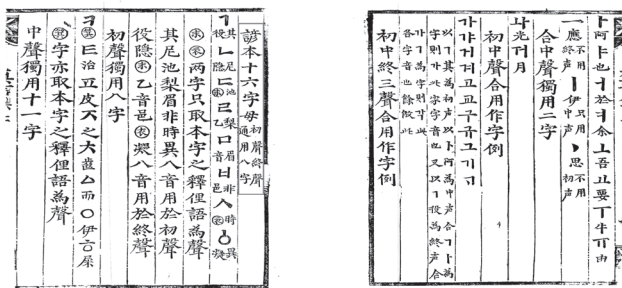 諺本十六字母 初聲終聲通用八字
ㄱ其役 ㄴ尼隱 ㄷ池末 ㄹ梨乙 ㅁ眉音 ㅂ非邑 ㅅ時衣 ㆁ異凝
末衣兩字只取本字之釋俚語爲聲
其尼池梨眉非時異八音用於初聲
役隱末乙音邑衣凝八音用於終聲
初聲獨用八字
ㅋ箕ㅌ治ㅍ皮ㅈ之ㅊ齒ㅿ而ㅇ伊ㅎ屎
箕字亦取本字之釋俚語爲聲
中聲獨用十一字
ㅏ阿ㅑ也ㅓ於ㅕ余ㅗ吾ㅛ要ㅜ牛ㅠ由
ㅡ應不用終声 ㅣ伊只用中声 ㆍ思不用初声
合中聲獨用二字
ㅘ光ㅝ月
初中聲合用作字例
가갸거겨고교구규그기ᄀᆞ
以ㄱ其爲初声以ㅏ阿爲中声合ㄱㅏ爲
字則가此家字音也又以ㄱ役爲終声合
가ㄱ爲字則각此
各字音也餘倣此
初中終三聲合用作字例